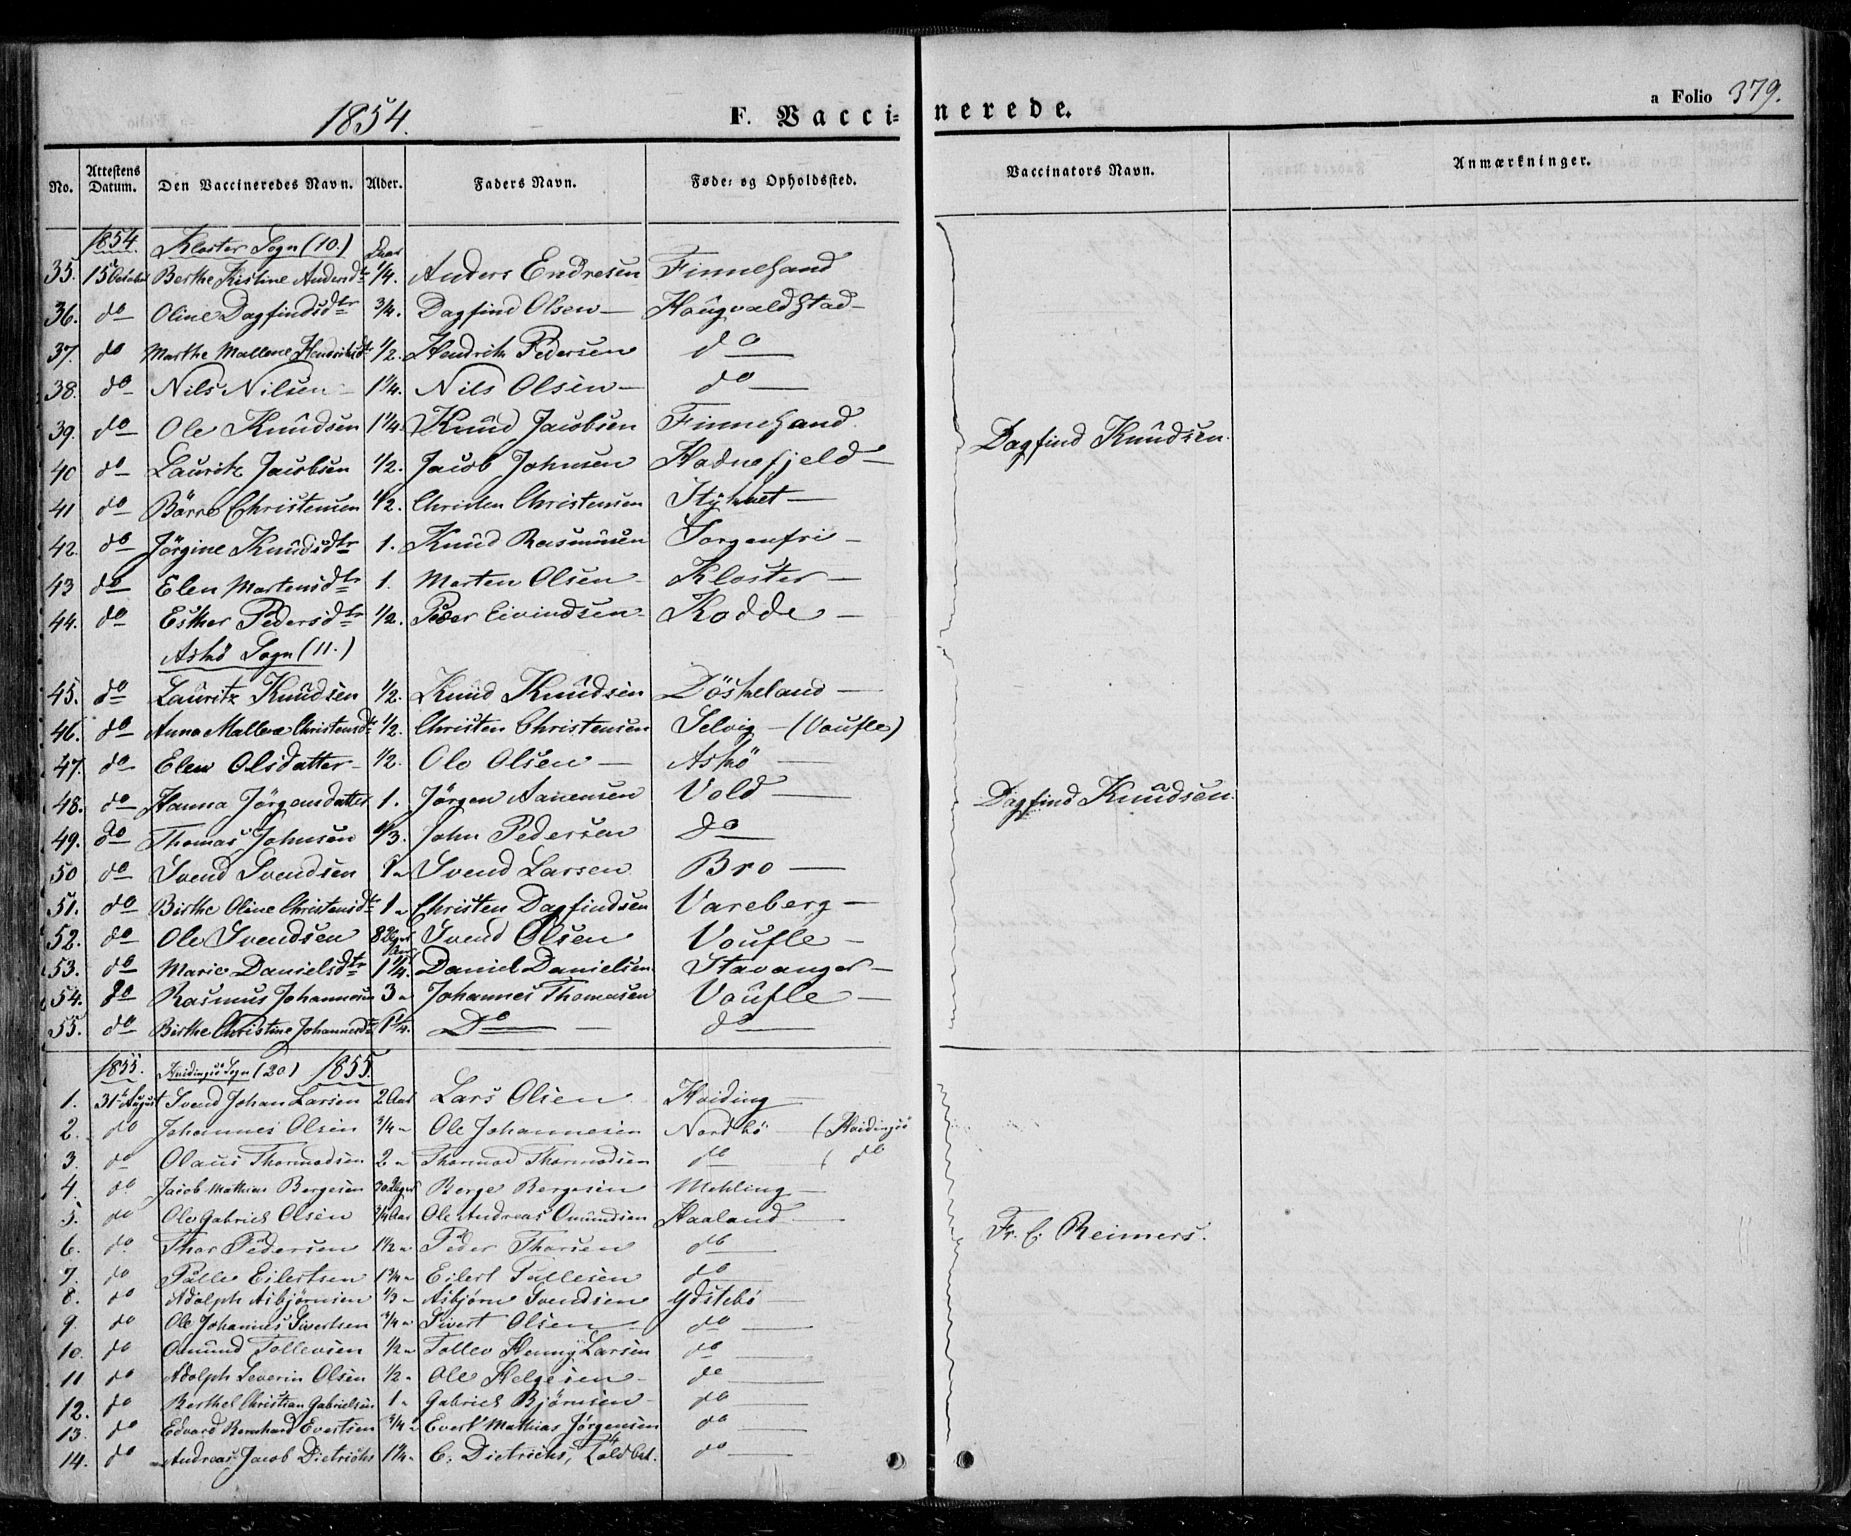 1854.
F. Vaccinerede.
a Folio 379.
No. Attestens Datum. Den Vaccineredes Navn. Alder. Faders Navn. Føde- og Opholdssted. Vaccinators Navn. Anmærkninger.
1854. Kloster Sogn (10.) Aar
35. 15 October Berthe Kistine Andersdtr 1/4. Anders Endresen Finnesand
36. do Oline Dagfindsdtr 3/4. Dagfind Olsen Haugvaldstad
37. do Marthe Mallene Hendriksdtr 1/2. Hendrik Pedersen do
38. do Nils Nilsen 1 1/4. Nils Olsen do
39. do Ole Knudsen 1 1/4. Knud Jacobsen Finnesand. Dagfind Knudsen.
40 do Lauritz Jacobsen 1/2. Jacob Johnsen Hodnefjeld
41 do Börre Christensen 1/2. Christen Christensen Stykket
42. do Jörgine Knudsdtr 1. Knud Rasmussen Sorgenfri
43 do Elen Mortensdtr 1. Morten Olsen Kloster
44. do Esther Pedersdtr 1/2. Peder Eivindsen Kodde
Askö Sogn (11.)
45. do Lauritz Knudsen 1/2. Knud Knudsen Döskeland
46. do Anna Mallene Christensdtr 1/2. Christen Christensen Selvig (Voufle)
47. do Elen Olsdatter 1/2. Ole Olsen Askö
48. do Hanna Jörgensdatter 1. Jörgen Aanensen Vold Dagfind Knudsen.
49. do Thomas Johnsen 1/3. John Pedersen Do
50 do Svend Svendsen 1 " Svend Larsen Bro
51. do Birthe Oline Christensdtr 1 " Christen Dagfindsen Vareberg
52. do Ole Svendsen 8 Uger Svend Olsen Voufle
53. do Marie Danielsdtr 1 1/4. Daniel Danielsen Stavanger
54. do Rasmus Johannesen 3 " Johannes Thomasen Voufle
55. do Birthe Christine Johannesdtr 1 1/4. Do do
1855. Hvidingsö Sogn (20) 1855.
1. 31te August Svend Johan Larsen 2 Aar Lars Olsen Hviding
2. do Johannes Olsen 3/4 " Ole Johannesen Nordbö (Hvidingsö
3. do Olaus Thormodsen 2 " Thormod Thormodsen do ( do
4. do Jacob Mathias Bergesen 30 Uger Berge Bergesen Mehling
5. do Ole Gabriel Olsen 3/4 Aar Ole Andreas Omundsen Haaland Fr. C. Reimers.
6. do Thor Pedersen 1 1/2 " Peder Thorsen do
7. do Palle Eilertsen 1 3/4 " Eilert Pallesen do
8. do Adolph Asbjörnsen 1/3 " Asbjörn Svendsen Ydstebö
9. do Ole Johannes Sivertsen 3/4 " Sivert Olsen do
10. do Omund Tollevsen 1/2 " Tollev Henny Larsen do
11 do Adolph Severin Olsen 1/2 " Ole Helgesen do
12. do Berthel Christian Gabrielsen 1 " Gabriel Bjørnsen do
13. do Edvard Bernhard Evertsen 3/4 " Evert Mathias Jörgensen do
14. do Andreas Jacob Dietrichs 1 3/4 " C. Dietrichs, Told Bet. do